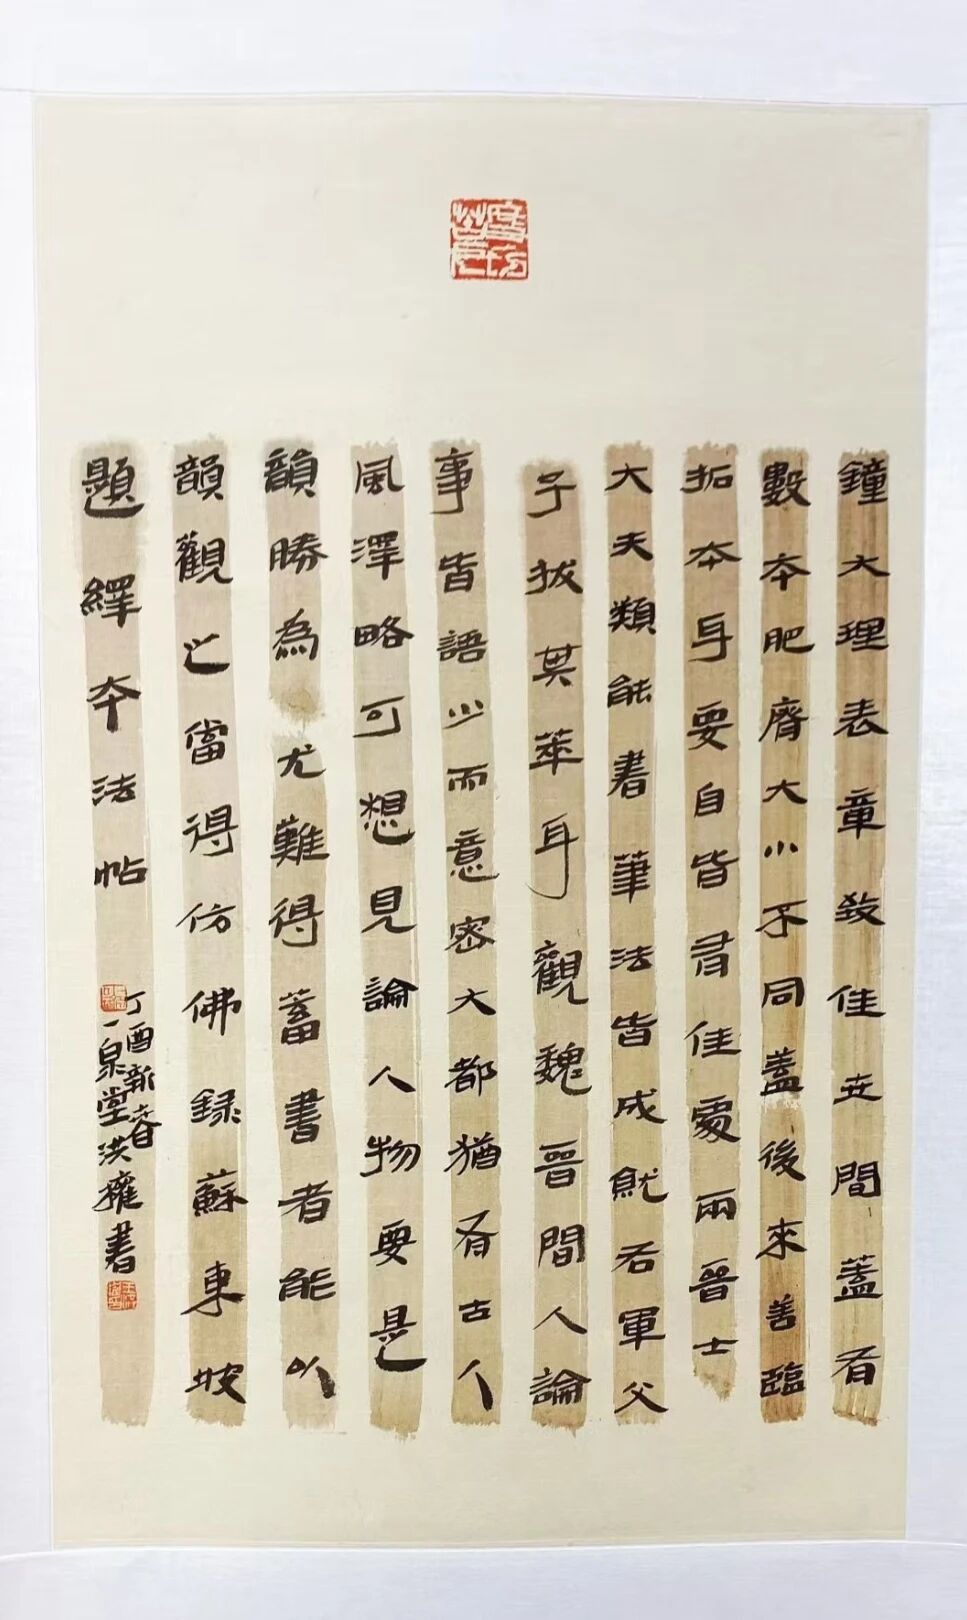 鐘大理表章致佳世間蓋有
數本肥瘠大小不同蓋後來善臨
拓本耳要自皆有佳處兩晉士
大夫類能書筆法皆成就右軍父
子拔其萃耳觀魏晉間人論
事皆語少而意密大都猶有古人
風澤略可想見論人物要是
韻勝為尤難得蓄書者能以
韻觀之當得仿佛録蘇東坡
題繹本法帖
丁酉新春
一泉堂洪雍書